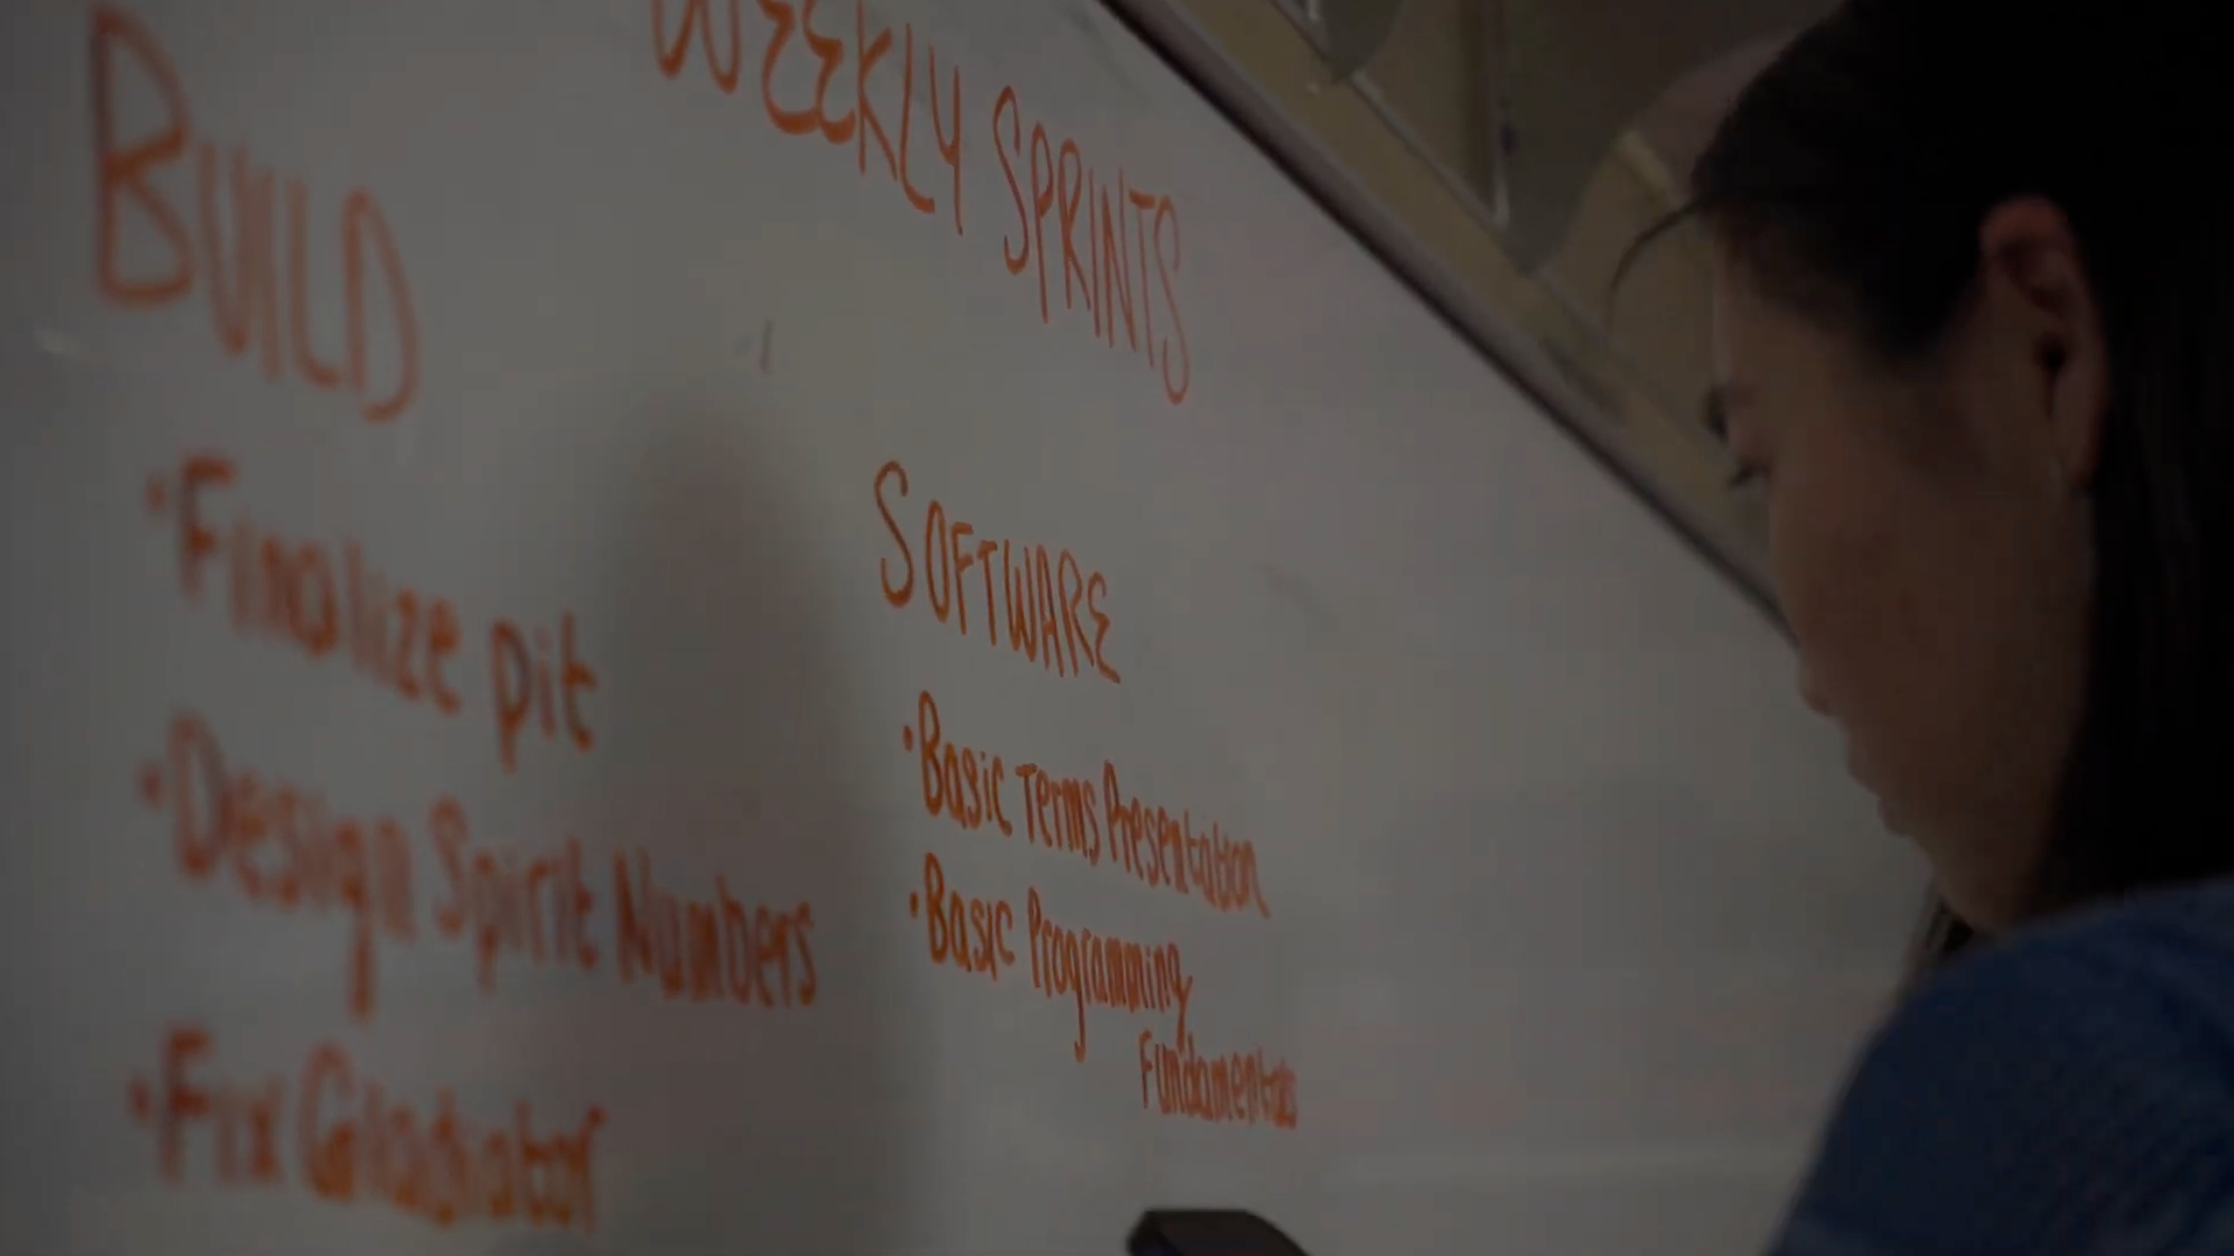 WEEKLY SPRINTS
BUILD
· Finalize pit
· Design Spirit Numbers
· Fix Gladiator
SOFTWARE
· Basic Terms Presentation
· Basic Programming
Fundamentals